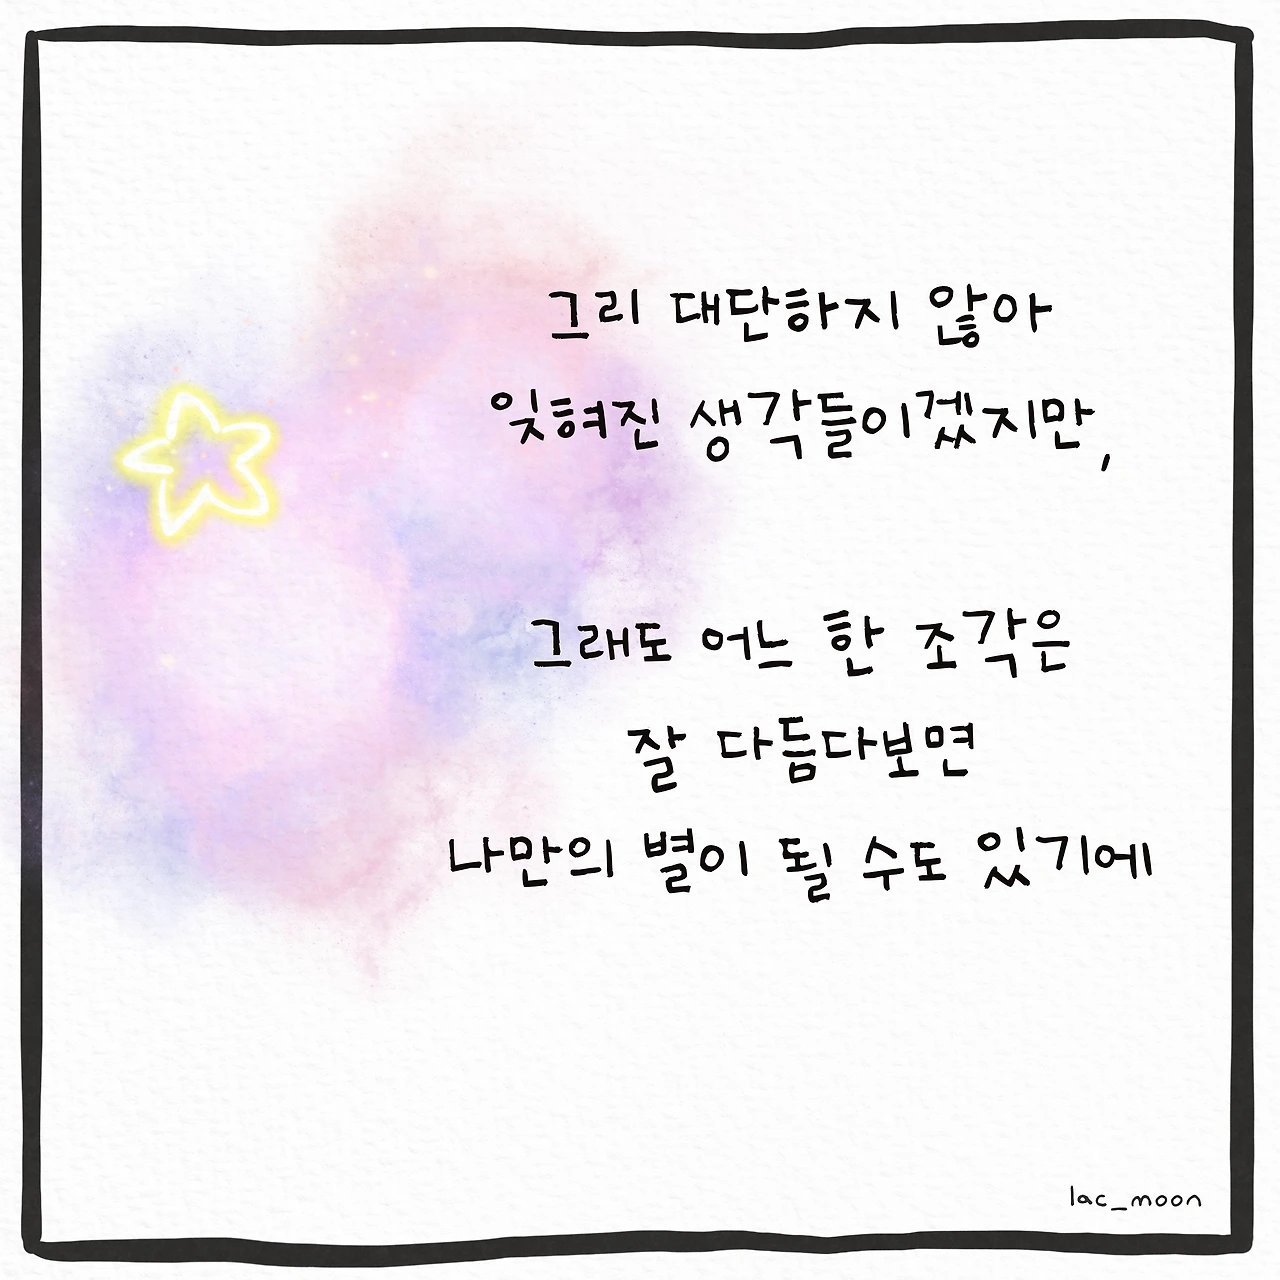 그리 대단하지 않아
잊혀진 생각들이겠지만,
그래도 어느 한 조각은
잘 다듬다보면
나만의 별이 될 수도 있기에
lac_moon